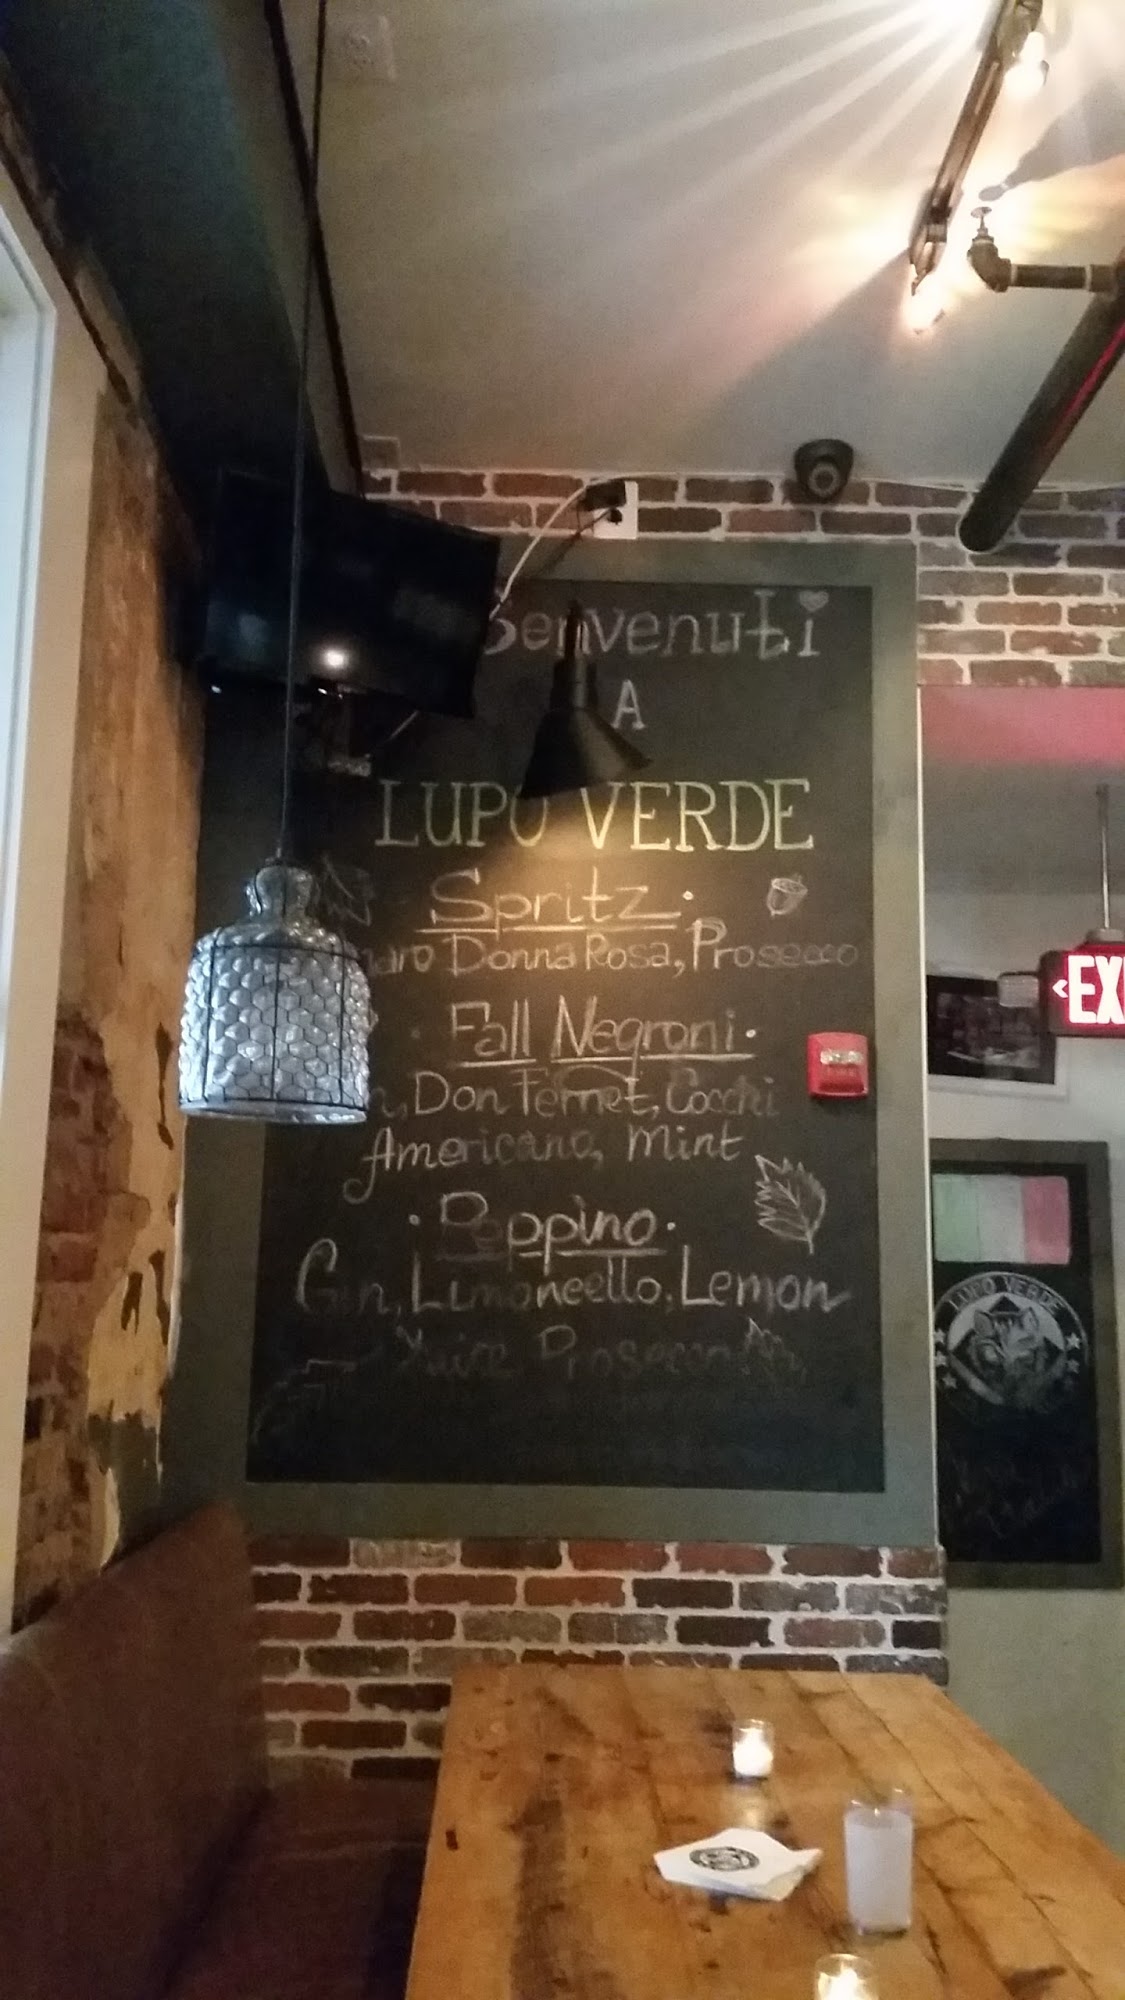 Benvenuti
A
LUPO VERDE
Spritz.
Donna Rosa, Prosecco
· Fall Negroni ·
Don Fernet, Cocchi
Americano, Mint
· Peppino ·
Gin, Limoncello, Lemon
Juice Prosecco
EXI
LUPO VERDE